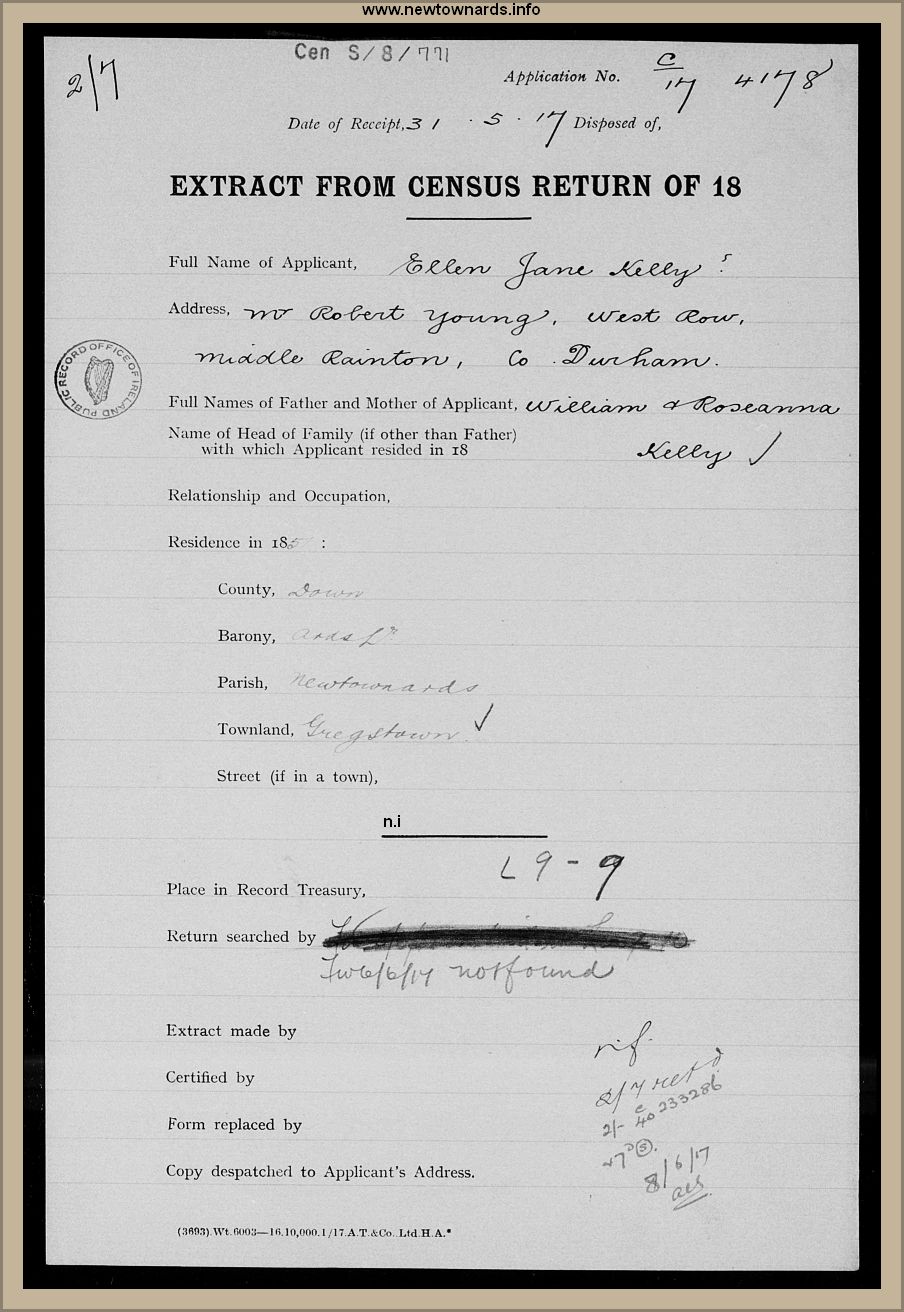 www.newtownards.info
Cen S/8/771
2/7
Application No. C/17 4178
Date of Receipt, 31 . 5 . 17 Disposed of,
EXTRACT FROM CENSUS RETURN OF 18
Full Name of Applicant, Ellen Jane Kelly
Address, Mr Robert Young, West Row,
Middle Rainton, Co. Durham.
PUBLIC RECORD OFFICE OF IRELAND
Full Names of Father and Mother of Applicant, William & Roseanna
Name of Head of Family (if other than Father)
with which Applicant resided in 18 Kelly ✓
Relationship and Occupation,
Residence in 185 :
County, Down
Barony, Ards Lr
Parish, Newtownards
Townland, Gregstown ✓
Street (if in a town),
n.i
L 9 - 9
Place in Record Treasury,
Return searched by
6/6/17 not found
Extract made by
n.f.
Certified by
2/7 ret d
2/- 40 233286
Form replaced by
Copy despatched to Applicant's Address.
8/6/17
(3693).Wt.6003—16.10,000.1/17.A.T.&Co.,Ltd.H.A.*